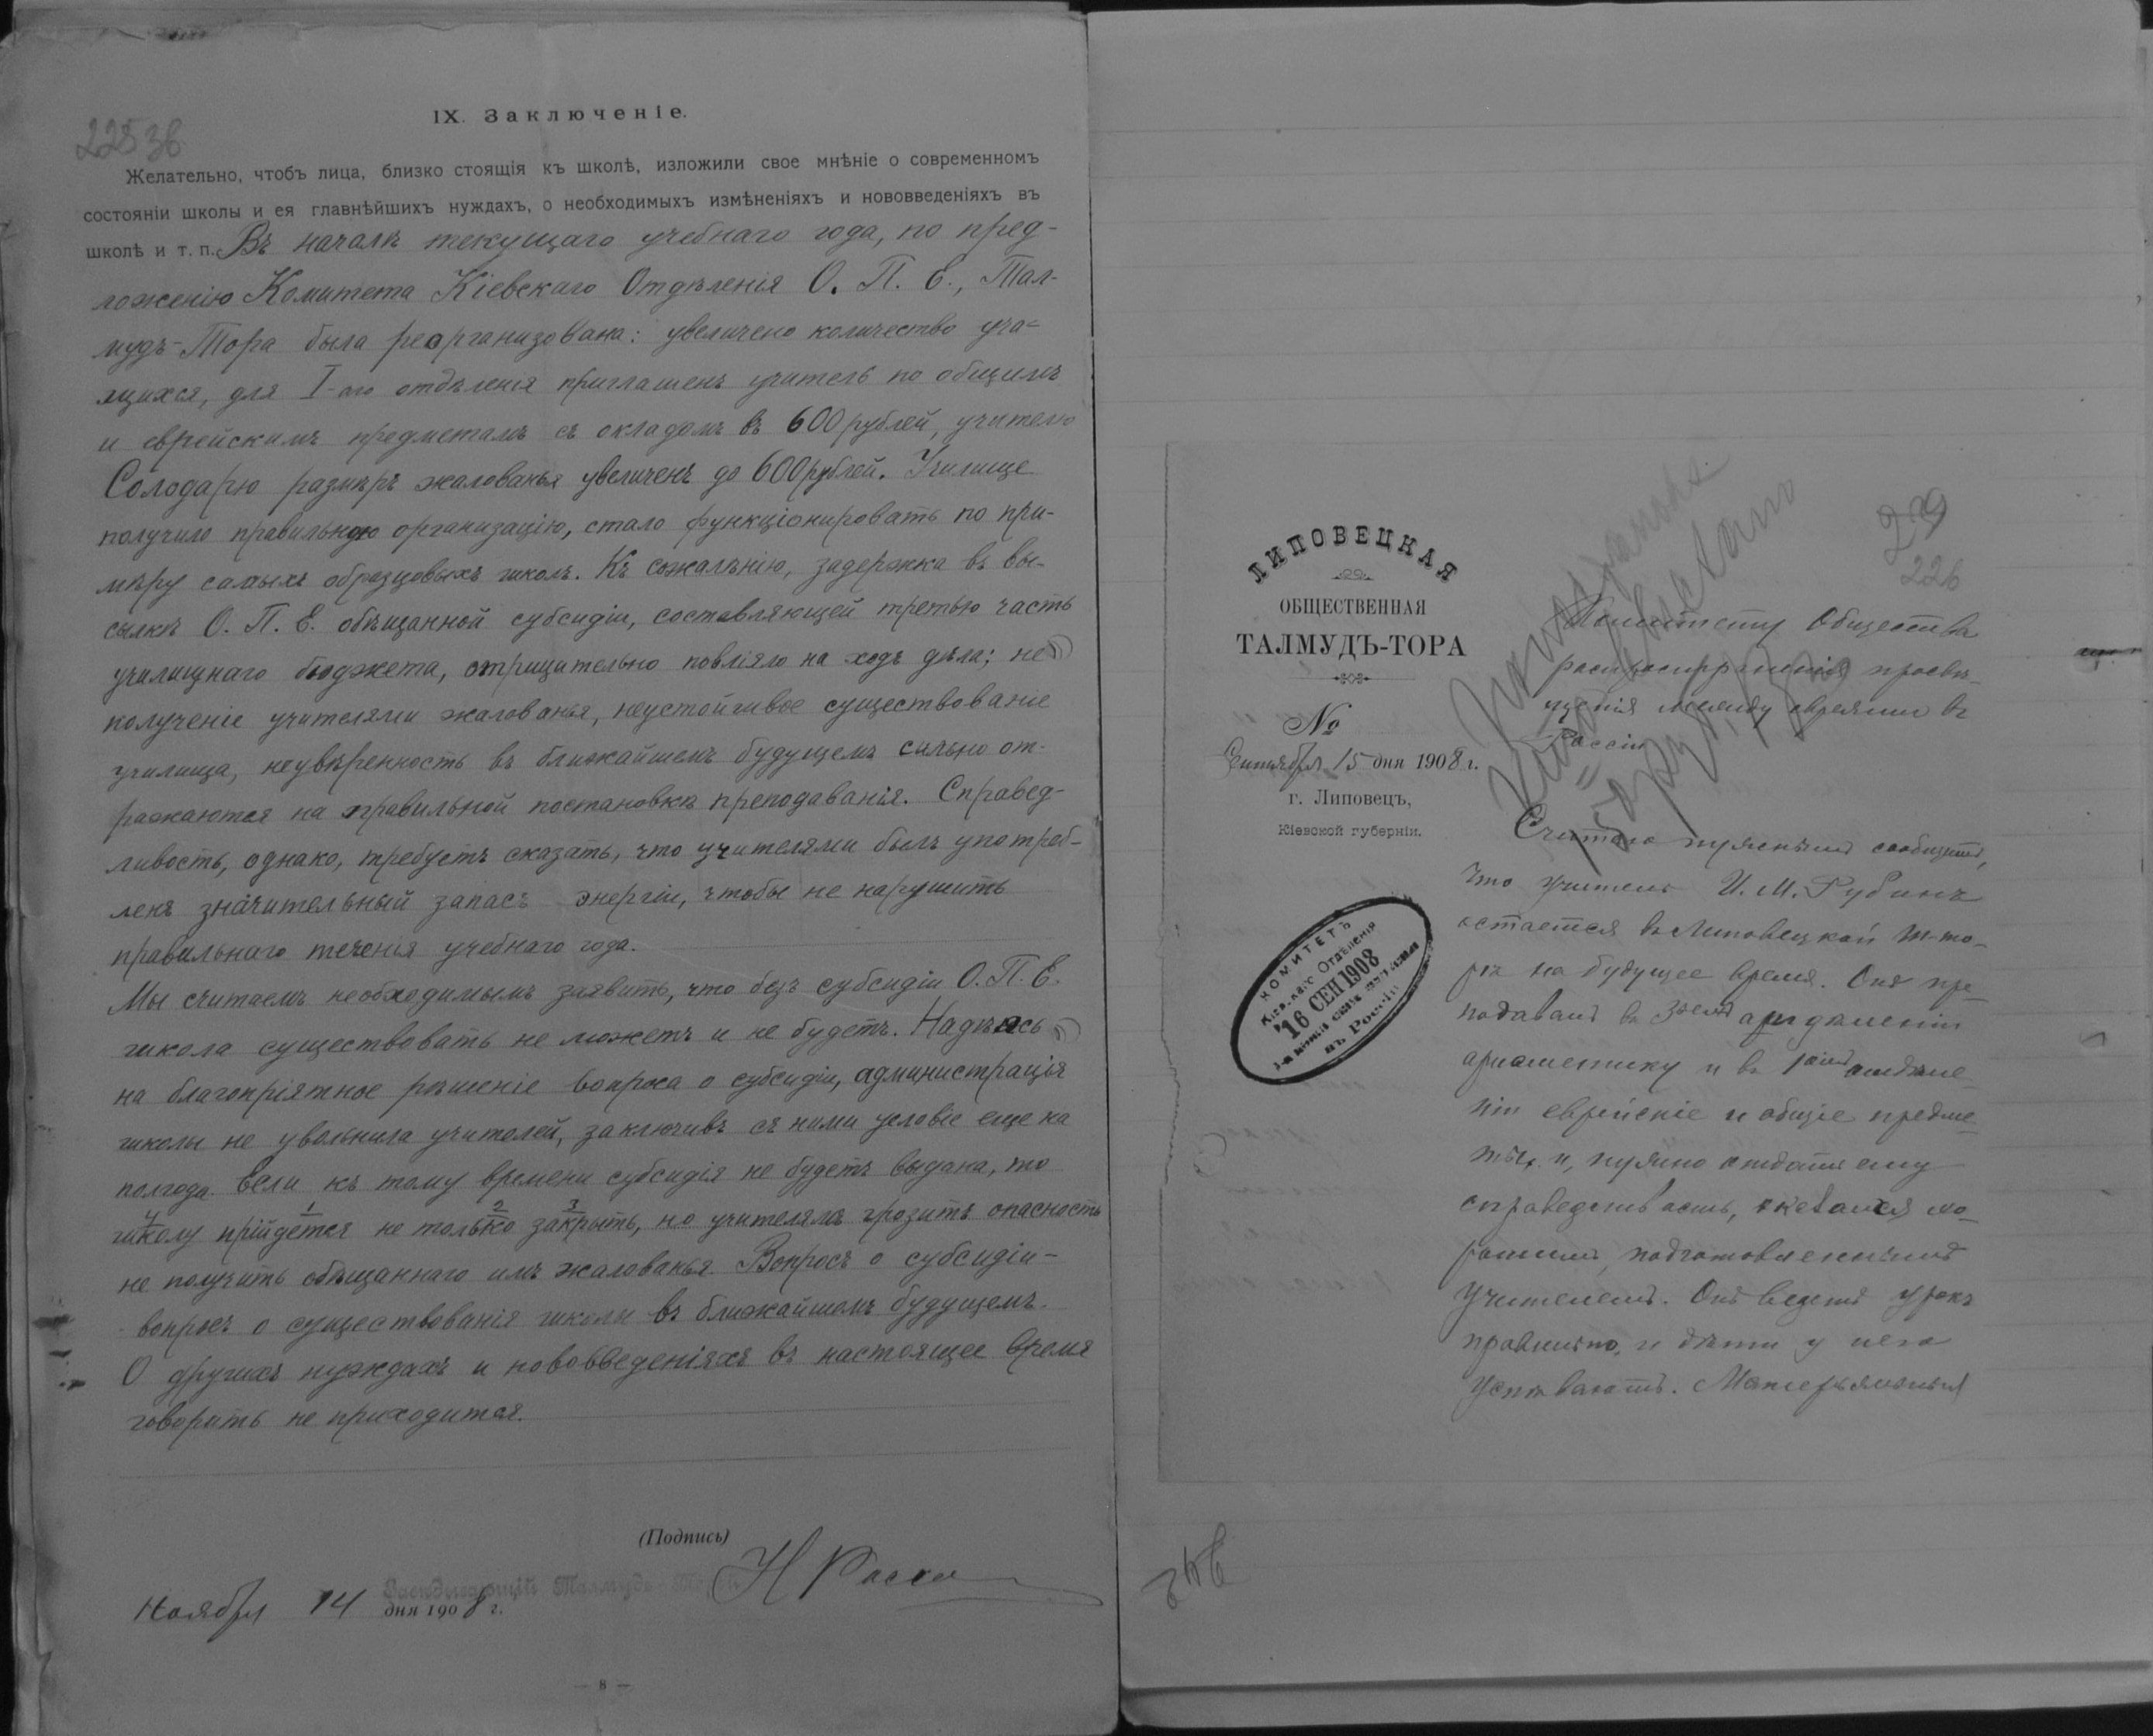 225 зв
IX. Заключеніе.
Желательно, чтобъ лица, близко стоящія къ школѣ, изложили свое мнѣніе о современномъ
состояніи школы и ея главнѣйшихъ нуждахъ, о необходимыхъ измѣненіяхъ и нововведеніяхъ въ
школѣ и т. п. Въ началѣ текущаго учебнаго года, по пред-
ложенію Комитета Кіевскаго Отдѣленія О. П. Е., Тал-
мудъ-Тора была реорганизована: увеличено количество уча-
щихся, для I-аго отдѣленія приглашенъ учитель по общимъ
и еврейскимъ предметамъ съ окладомъ въ 600 рублей, учителю
Солодарю размѣръ жалованья увеличенъ до 600 рублей. Училище
получило правильную организацію, стало функціонировать по при-
мѣру самыхъ образцовыхъ школъ. Къ сожалѣнію, задержка въ вы-
сылкѣ О. П. Е. обѣщанной субсидіи, составляющей третью часть
училищнаго бюджета, отрицательно повліяло на ходъ дѣла; не
полученіе учителями жалованья, неустойчивое существованіе
училища, неувѣренность въ ближайшемъ будущемъ сильно от-
ражаются на правильной постановкѣ преподаванія. Справед-
ливость, однако, требуетъ сказать, что учителями былъ употреб-
ленъ значительный запасъ энергіи, чтобы не нарушить
правильнаго теченія учебнаго года.
Мы считаемъ необходимымъ заявить, что безъ субсидіи О. П. Е.
школа существовать не можетъ и не будетъ. Надѣясь
на благопріятное рѣшеніе вопроса о субсидіи, администрація
школы не увольнила учителей, заключивъ съ ними условіе еще на
полгода. Если къ тому времени субсидія не будетъ выдана, то
4 1 2 3
школу прійдется не только закрыть, но учителямъ грозитъ опасность
не получить обѣщаннаго имъ жалованья. Вопросъ о субсидіи -
вопросъ о существованія школы въ ближайшемъ будущемъ.
О другихъ нуждахъ и нововведеніяхъ въ настоящее время
говорить не приходится.
(Подпись)
Завѣдывающій Талмудъ-Торой
Ноября 14 дня 1908 г.
— 8 —
ЛИПОВЕЦКАЯ
ОБЩЕСТВЕННАЯ
ТАЛМУДЪ-ТОРА
№
Сентября 15 дня 1908 г.
г. Липовецъ,
Кіевской губерніи.
КОМИТЕТЪ
16 СЕН 1908
въ Россіи
226
Комитету Общества
распространенія просвѣ-
щенія между евреями въ
Россіи
Считаю нужнымъ сообщить,
что учитель И. М. Рубинъ
остается въ Липовецкой Т-То-
рѣ на будущее время. Онъ пре-
подавалъ въ 3-емъ отдѣленіи
ариөметику и въ 1омъ отдѣле-
ніи еврейскіе и общіе предме-
ты, и, нужно отдать ему
справедливость, оказался хо-
рошимъ, подготовленнымъ
учителемъ. Онъ ведетъ урокъ
правильно, и дѣти у него
успѣваютъ.
242